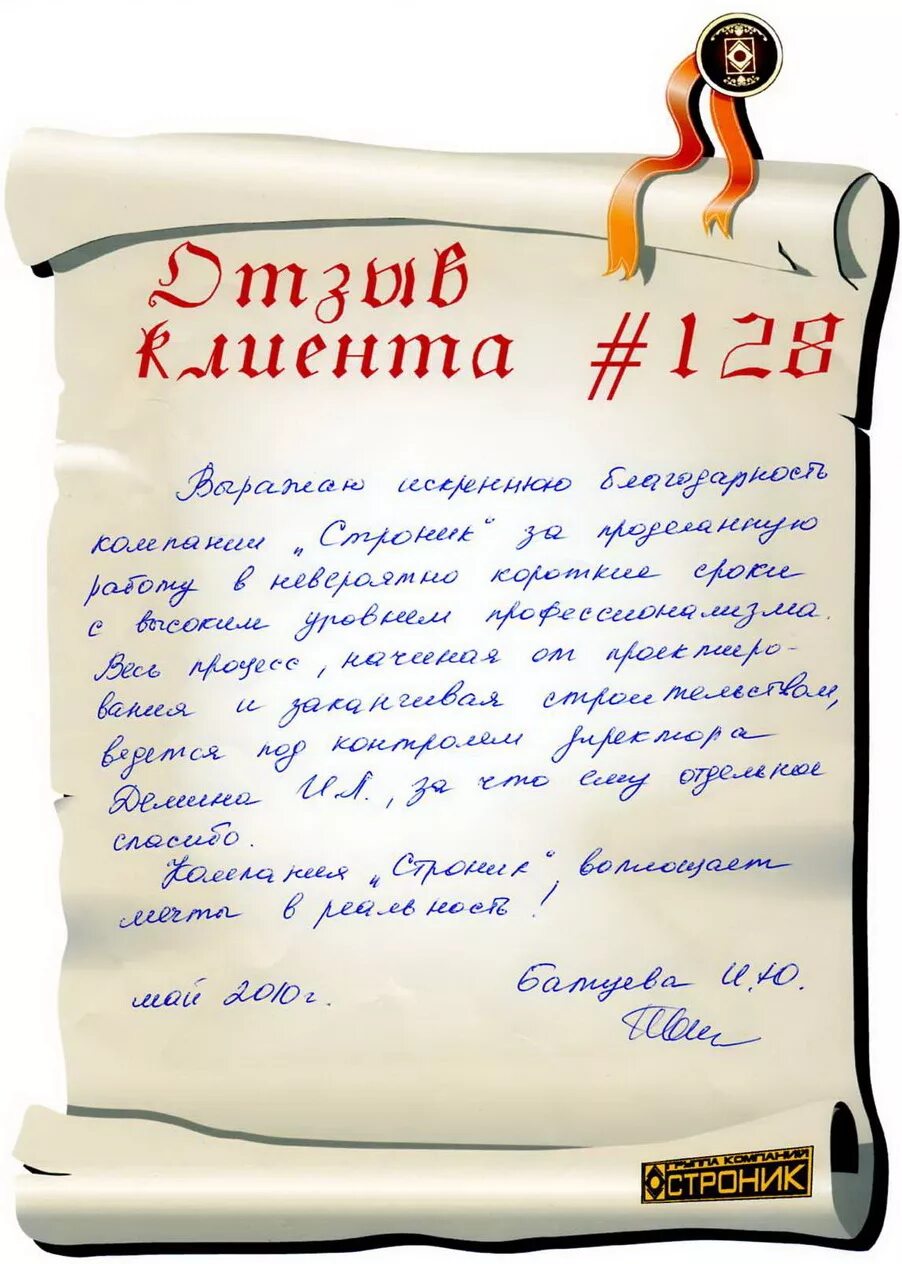 Отзыв
клиента #128
Выражаю искреннюю благодарность
компании „Строник“ за проделанную
работу в невероятно короткие сроки
с высоким уровнем профессионализма.
Весь процесс, начиная от проектиро-
вания и заканчивая строительством,
ведется под контролем директора
Демина И.Л., за что ему отдельное
спасибо.
Компания „Строник“ воплощает
мечты в реальность!
май 2010г.
Батуева И.Ю.
ГРУППА КОМПАНИЙ
СТРОНИК